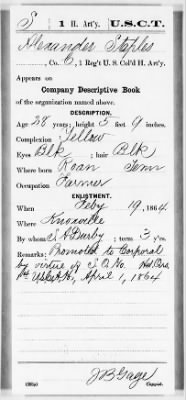 S | 1 H. Art'y. | U.S.C.T.
Alexander Staples
, Co. C, 1 Reg't U. S. Col'd H. Art'y.
Appears on
Company Descriptive Book
of the organization named above.
DESCRIPTION.
Age 28 years; height 5 feet 9 inches.
Complexion Yellow
Eyes Blk; hair Blk
Where born Roan Tenn
Occupation Farmer
ENLISTMENT.
When Feby 19, 1864.
Where Knoxville
By whom Darby; term 3 y'rs.
Remarks: Promoted to Corporal
by virtue of S.O. No. Hd. Qrs.
April 1, 1864
J B Gage
Copyist.